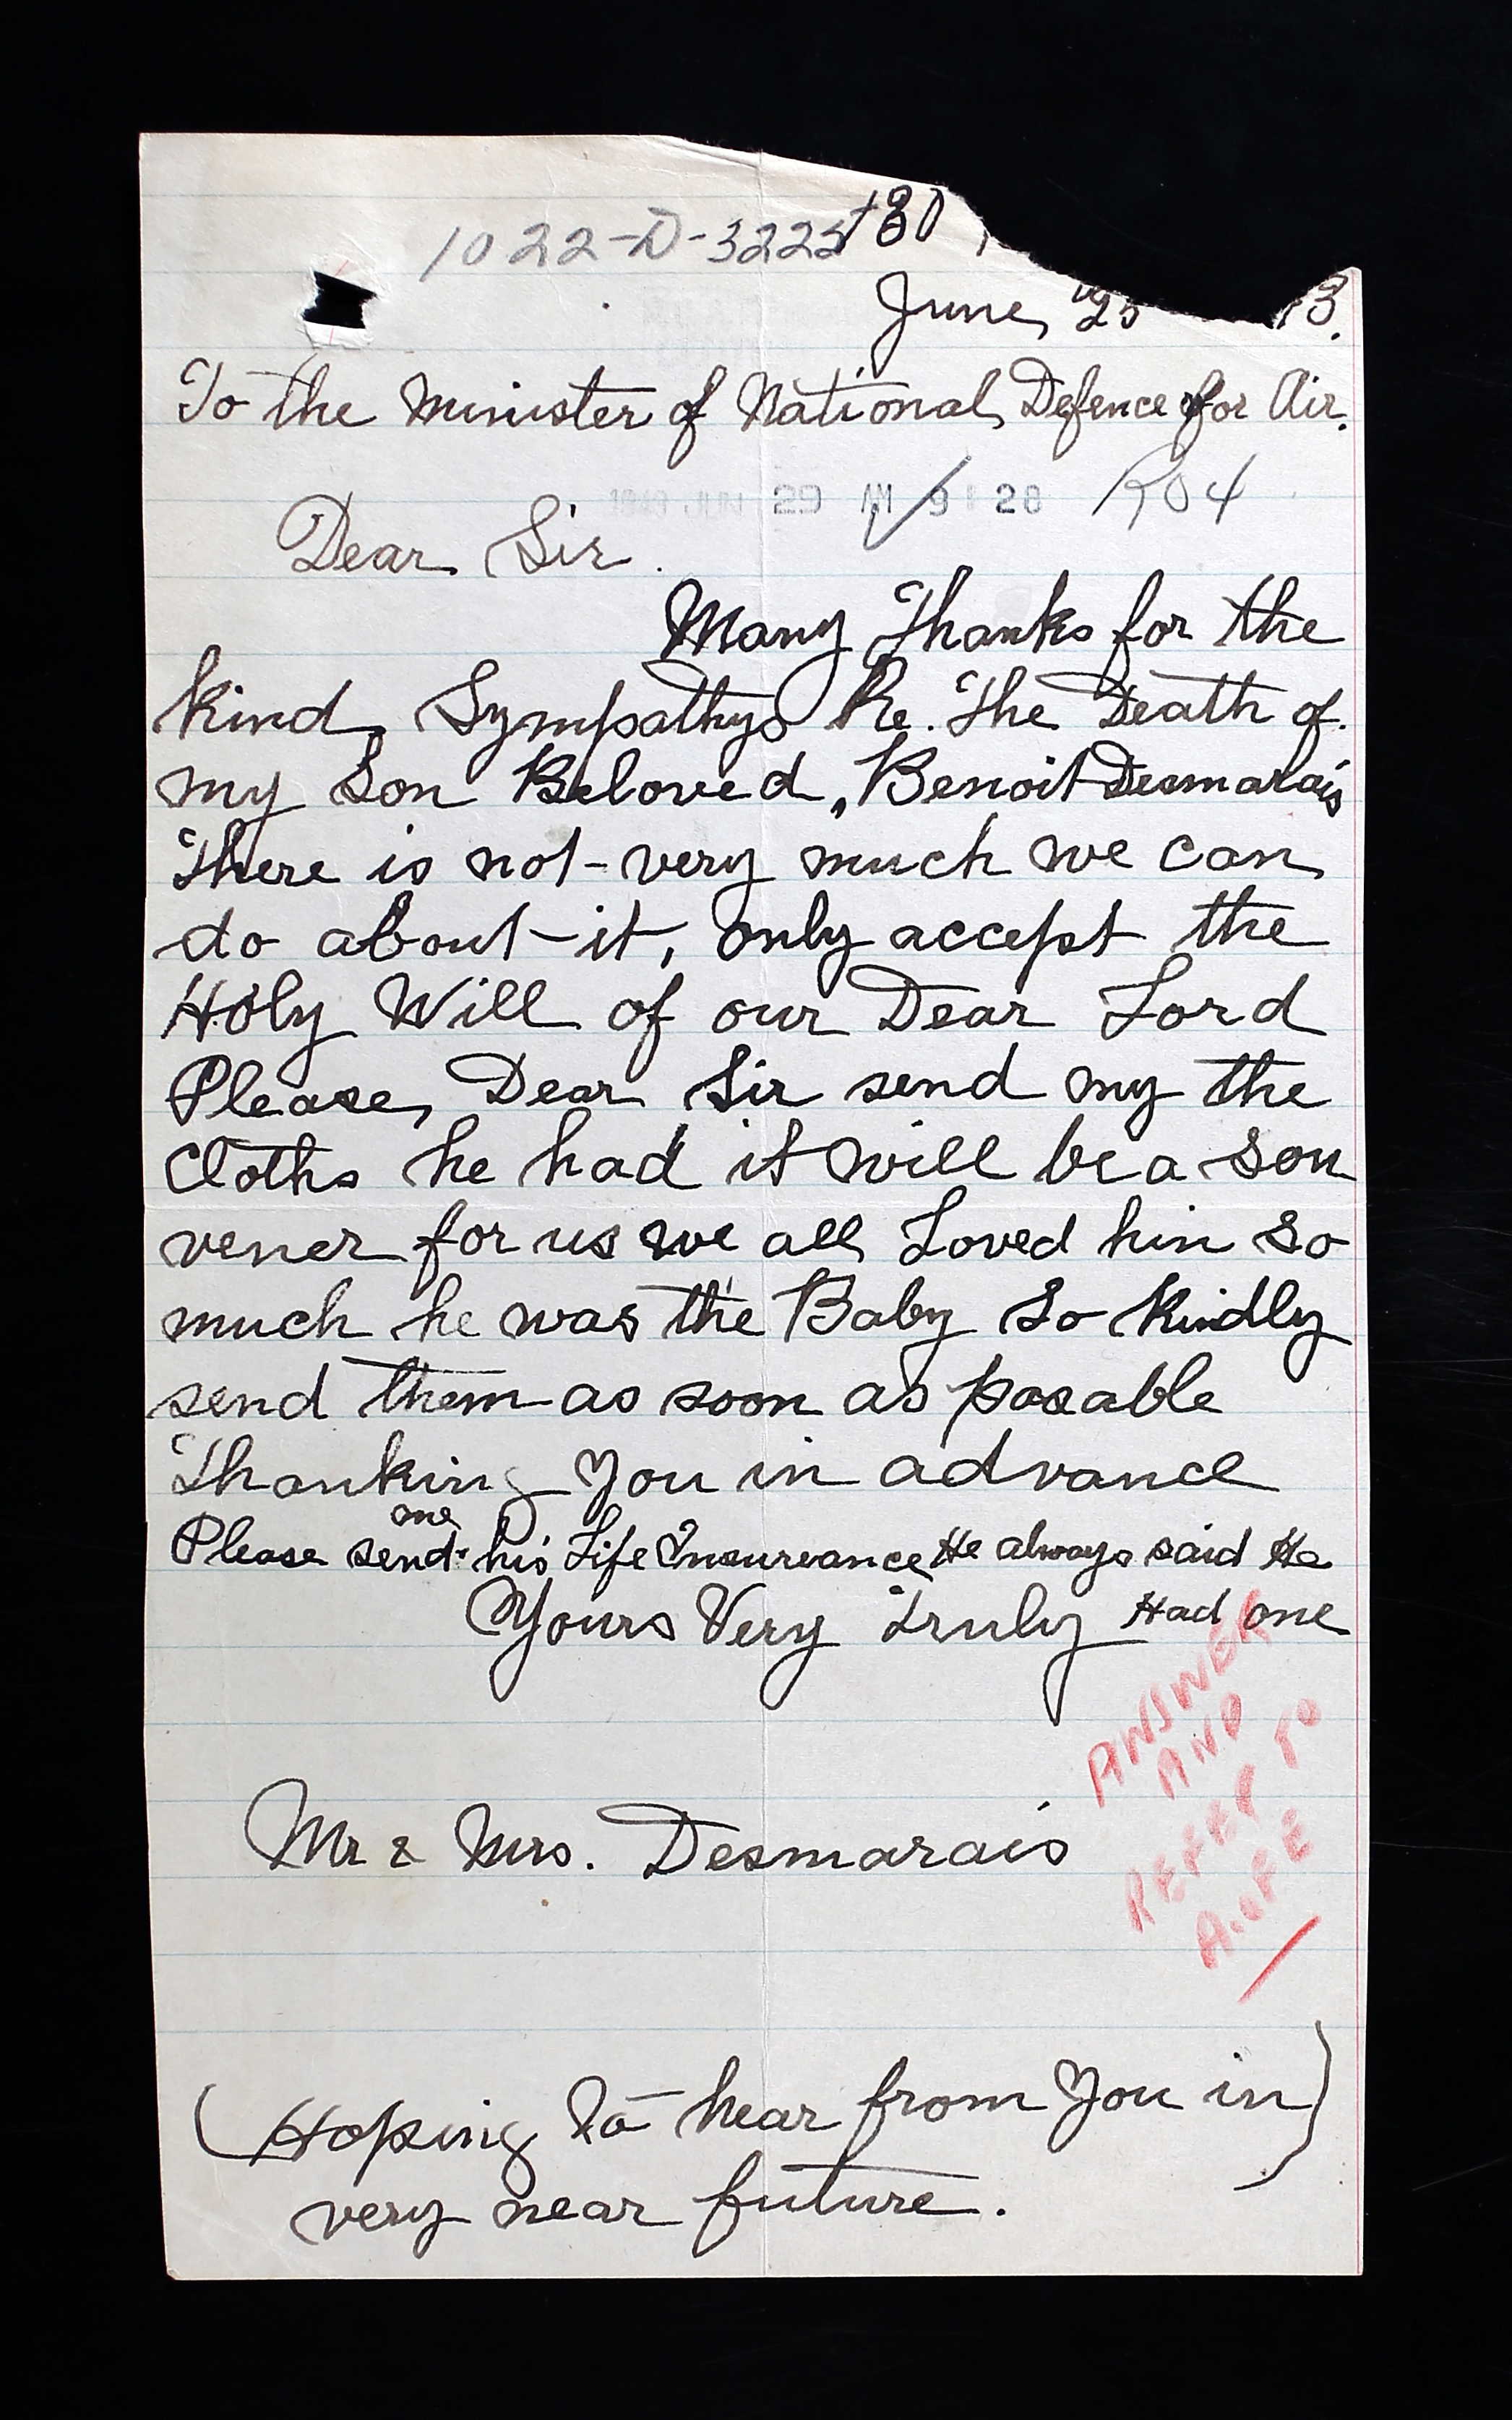 1022-D-3225
180
June, 25 3.
To the Minister of National, Defence for Air.
29 AM 9 28 R04
Dear Sir.
Many Thanks for the
kind, Sympathys Re. The Death of.
my Son Beloved, Benoit Desmarais
There is not-very much we can
do about-it, only accept the
Holy Will of our Dear Lord
Please, Dear Sir send my the
Cloths he had it will be a sou
vener for us we all Loved him so
much he was the Baby So Kindly
send them as soon as posable
Thanking You in advance
me
Please send his Life Insureance He always said He
Yours Very Truly Had one
ANSWER
AND
REFER TO
A.OFE
Mr & Mrs. Desmarais
(Hoping To hear from You in)
very near future.